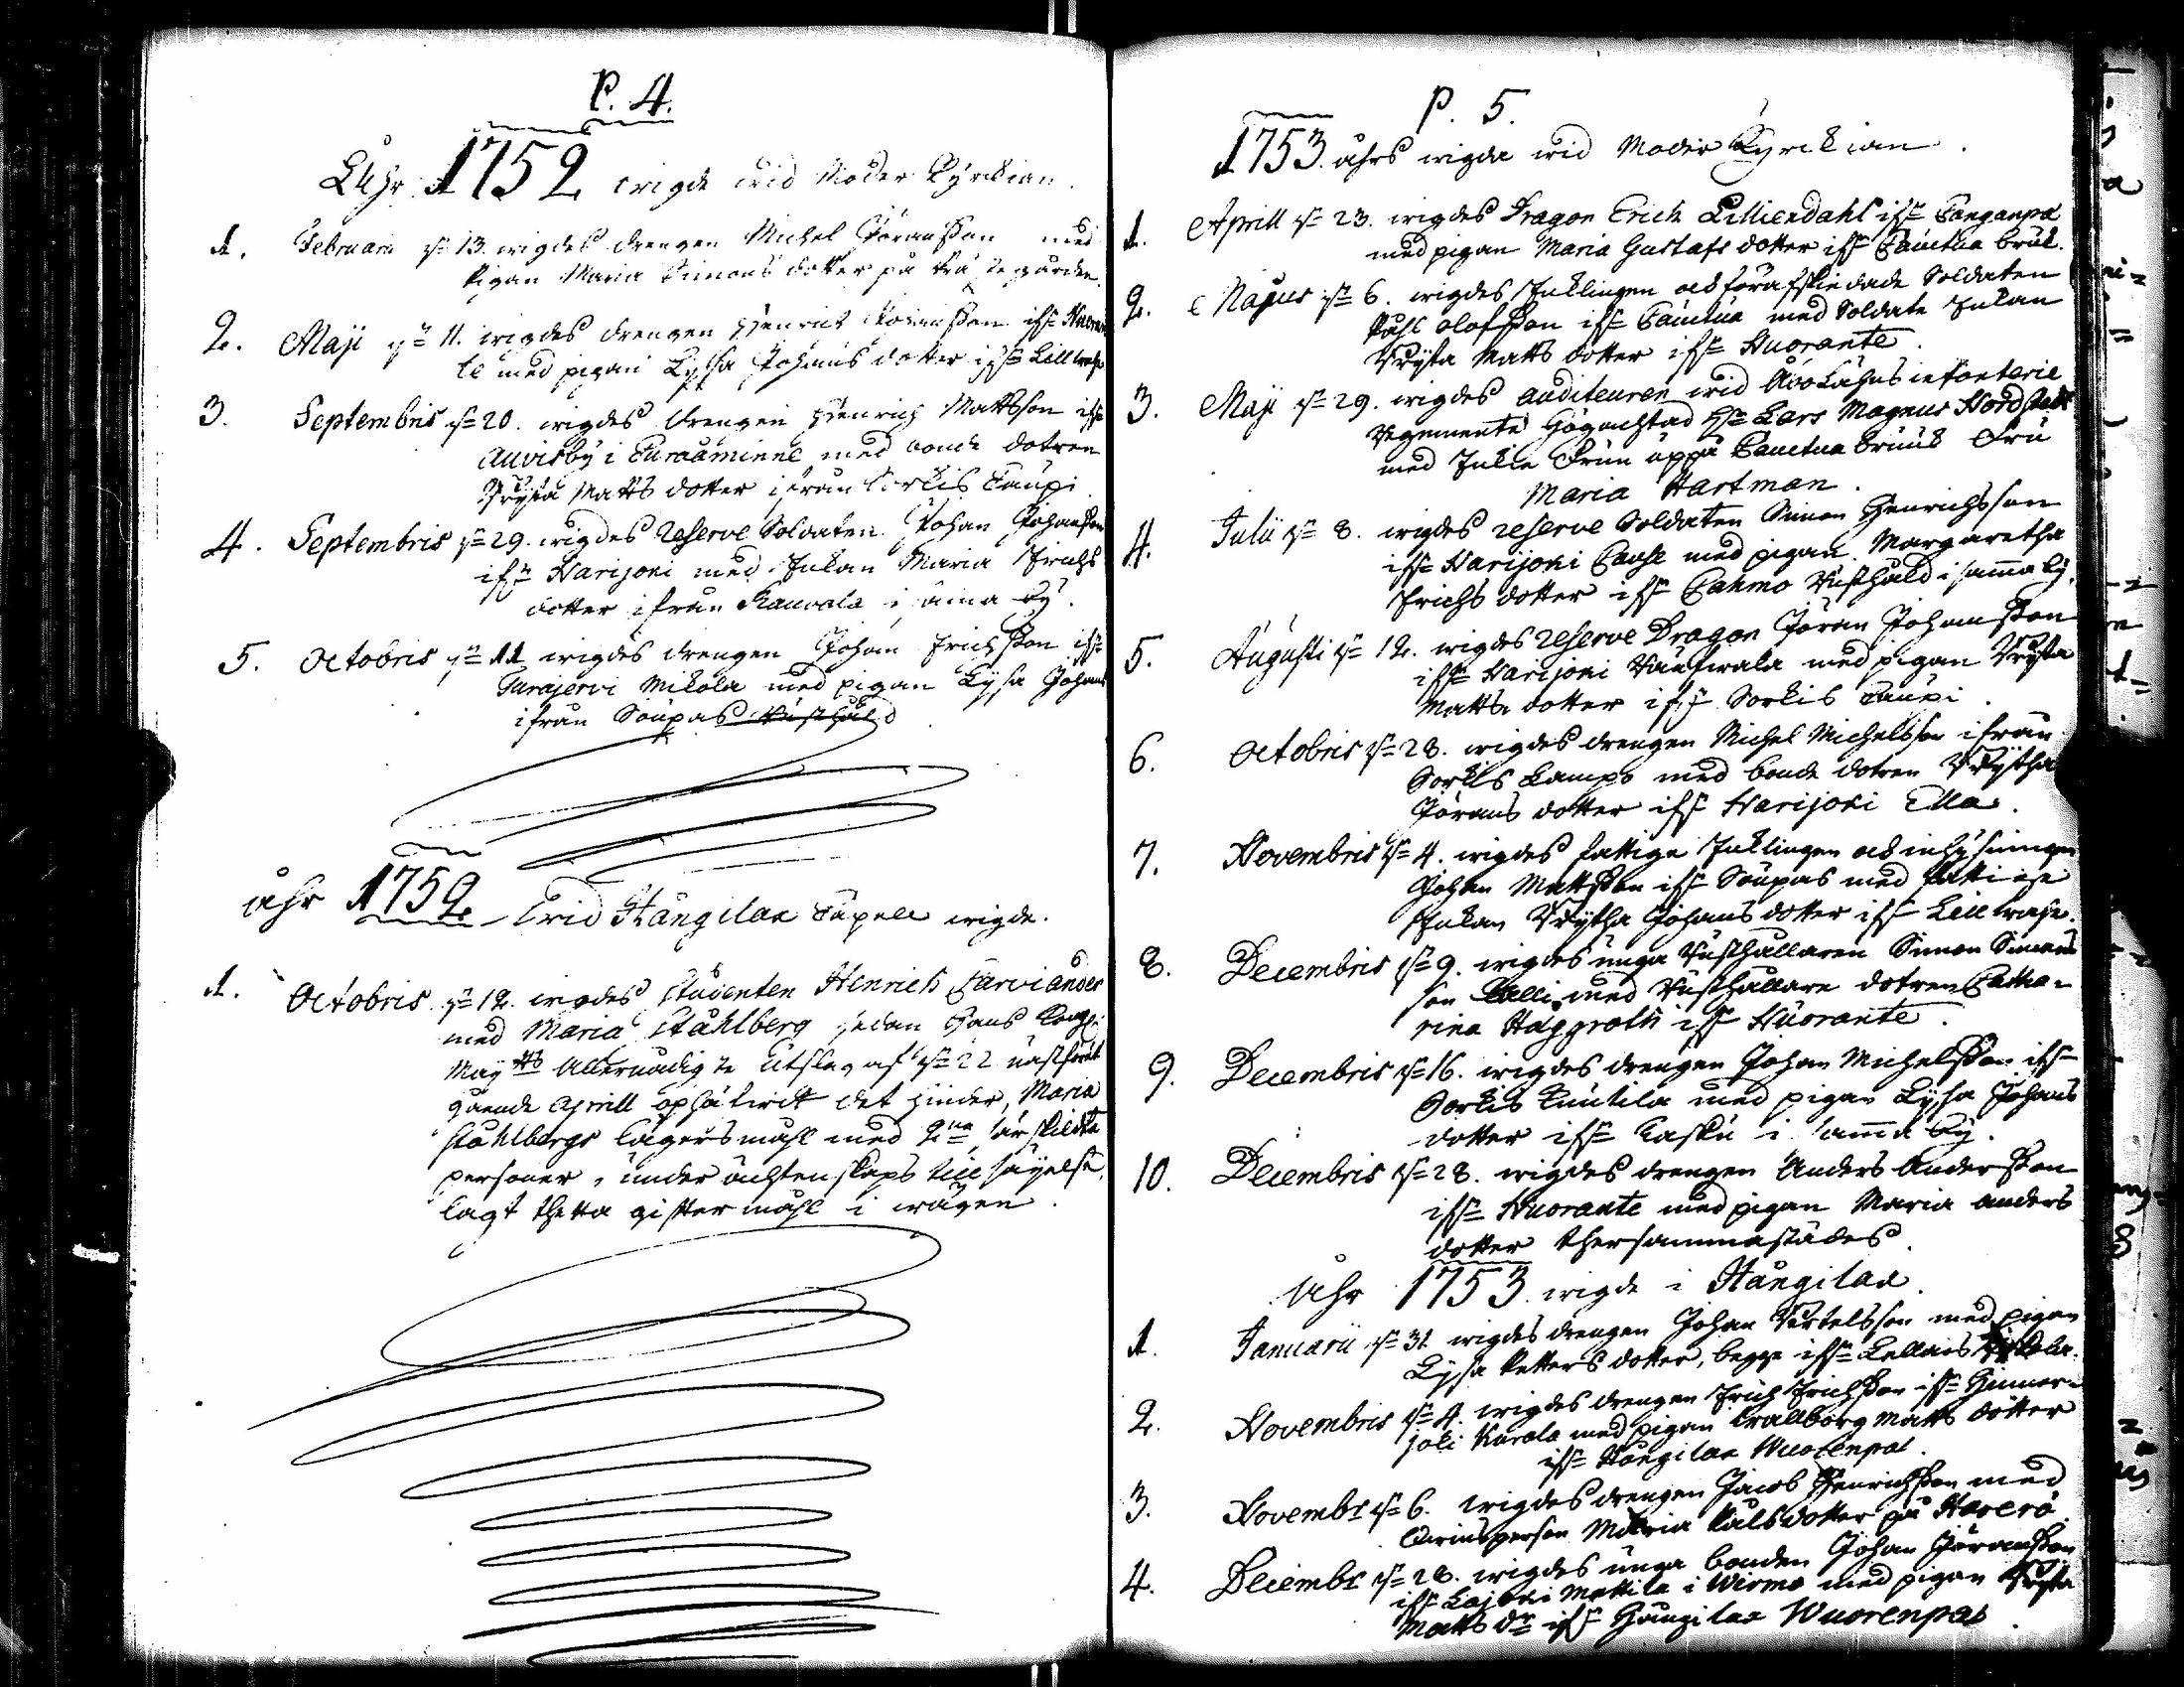 P. 4.
Åhr 1752 wigde wid Moder Kyrckian.
1. Februarii d. 13. wigdes drengen Michel Jöransson med
pigan Maria Simons dotter på Prästegården.
2. Maji d. 11. wigdes drengen Henrich Johansson ifr. Huoran
te med pigan Lysa Johans dotter ifr.
3. Septembris d. 20. wigdes drengen Henrich Mattsson ifr.
Auvisby i Euraåminne med bonde dotren
Bryta Matts dotter ifrån Sorkis Caupi.
4. Septembris d. 29. wigdes reserve Soldaten Johan Johansson
ifr. Harijoki med Enkan Maria Erichs
dotter ifrån Kauvala i sama by.
5. Octobris d. 11 wigdes drengen Johan Erichsson ifr.
Turajervi Mikola med pigan Lysa Johans
ifrån Söupas Rusthåld
åhr 1752. Wid Hångilax Capell wigde.
1. Octobris d. 12. wigdes studenten Henrich Carviander
med Maria Ståhlberg sedan Hans Kongl.
May:tts Allernådigste Utslag af d. 22 nästförut
gående Aprill ophäfwit det hinder, Maria
Ståhlbergs lägersmahl med 2:ne särskildta
personer, under ächtenskaps tillsäyelse,
lagt thetta giftermahl i wägen.
P. 5.
1753. åhrs wigda wid Moder Kyrckian.
1. Aprill d. 23. wigdes Dragon Erich Lilliendahl ifr. Canganpä
med pigan Maria Gustafs dotter ifr. Cauttua bruk.
2. Majus d. 6. wigdes Enklingen och förafskiedade Soldaten
Påhl Olofsson ifr. Cauttua med Soldate Enkan
Bryta Matts dotter ifr. Huorante.
3. Maji d. 29. wigdes auditeuren wid Åbo Lähns infanterie
Regemente Högachtad Hr. Lars Magnus Nordstedt
med Enkie Frun uppå Cauttua bruuk Fru
Maria Hartman.
4. Julii d. 8. wigdes reserve Soldaten Simon Henrichsson
ifr. Harijoki med pigan Margaretha
Erichs dotter ifr. Cahmo Rusthåld i samma by.
5. Augusti d. 12. wigdes reserve Dragon Jöran Johansson
ifr. Harijoki med pigan Bryta
Matts dotter ifr. Sorkis Caupi.
6. Octobris d. 28. wigdes drengen Michel Michelsson ifrån
Sorkis Lampo med bonde dotren Brytha
Jörans dotter ifr. Harijoki Ella.
7. Novembris d. 4. wigdes fattige Enklingen och inhysingen
Johan Mattsson ifr. Söupas med fattiga
Enkan Brytha Johans dotter ifr.
8. Decembris d. 9. wigdes unga Rusthållaren Simon Simons
son Lalli med Rusthållare dotren Catha-
rina Häggroth ifr. Huorante.
9. Decembris d. 16. wigdes drengen Johan Michelsson ifr.
Sorkis Knutila med pigan Lysa Johans
dotter ifr. Kasku i samma by.
10. Decembris d. 28. wigdes drengen Anders Andersson
ifr. Huorante med pigan Maria Anders
dotter thersammastädes.
Åhr 1753. wigde i Hångilax.
1. Januarii d. 31. wigdes drengen Johan Bertelsson med pigan
Lysa Petters dotter, begge ifr. Lellais
2. Novembris d. 4. wigdes drengen Erich Erichsson ifr. Hinner-
joki Karola med pigan Wallborg Matts dotter
ifr. Hångilax Wuorenpä.
3. Novembr. d. 6. wigdes drengen Jacob Henrichsson med
Qwinsperson Maria Påls dotter på Haverö.
4. Decembr. d. 28. wigdes unga bonden Johan Jöransson
ifr. Lajoki Mattila i Wirmo med pigan Brytha
Matts dr. ifr. Hångilax Wuorenpää